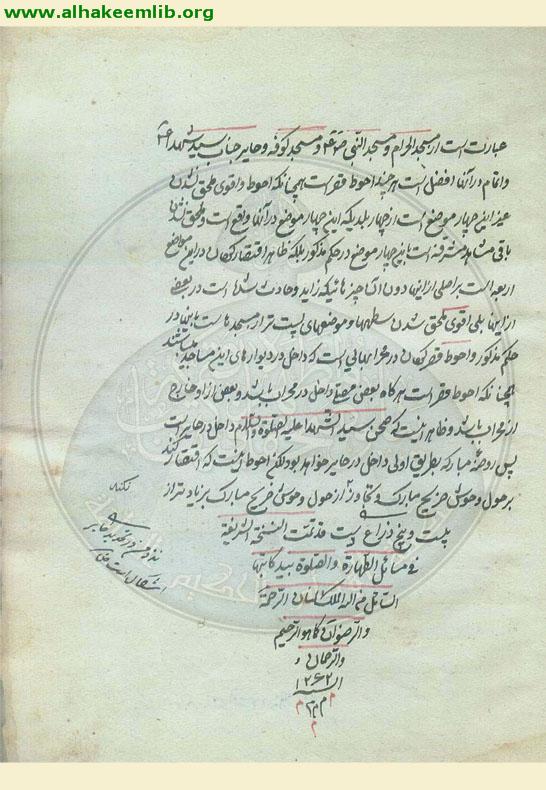 www.alhakeemlib.org
عبارت است از مسجد الحرام و مسجد النبی و مسجد کوفه و حایر جناب سید شهدا ع
و اتمام در آنها افضل است هر چند احوط قصر است همچنانکه احوط و اقوی ملحق نشدن
غیر این چهار موضع است از چهار بلدیکه این چهار موضع در آنها واقع است و ملحق نشدن
باقی مشاهد مشرفه است باین چهار موضع در حکم مذکور بلکه ظاهر اقتصار کردن در این مواضع
اربعه است بر اصلی از اینها دون آن چیزهائیکه زاید و حادث شده است در بعض
از اینها بلی اقوی ملحق شدن سطحها و موضعهای پست تر از مسجدها است باینها در
حکم مذکور و احوط قصر کردن در محرابهایی است که داخل در دیوارهای این مساجد میباشند
همچنانکه احوط قصر است هرگاه بعض مصلی داخل در محراب باشد و بعض از او خارج
از محراب باشد و ظاهر اینست که صحن سید الشهدا علیه الصلوة و السلام داخل در حایر است
پس روضه مبارکه بطریق اولی داخل در حایر خواهد بود لکن احوط اینست که اقتصار کند
بر حول و حوش ضریح مبارک و تجاوز از حول و حوش ضریح مبارک بزیادتر از
بیست و پنج ذراع قد تمت النسخة الشریفة
فی مسائل الطهارة و الصلوة بید کاتبها
من الله الملک المنان الرحمة
و الرضوان کما هو الرحیم
و الرحمان
۱۲۶۲
م م م
م
نکند